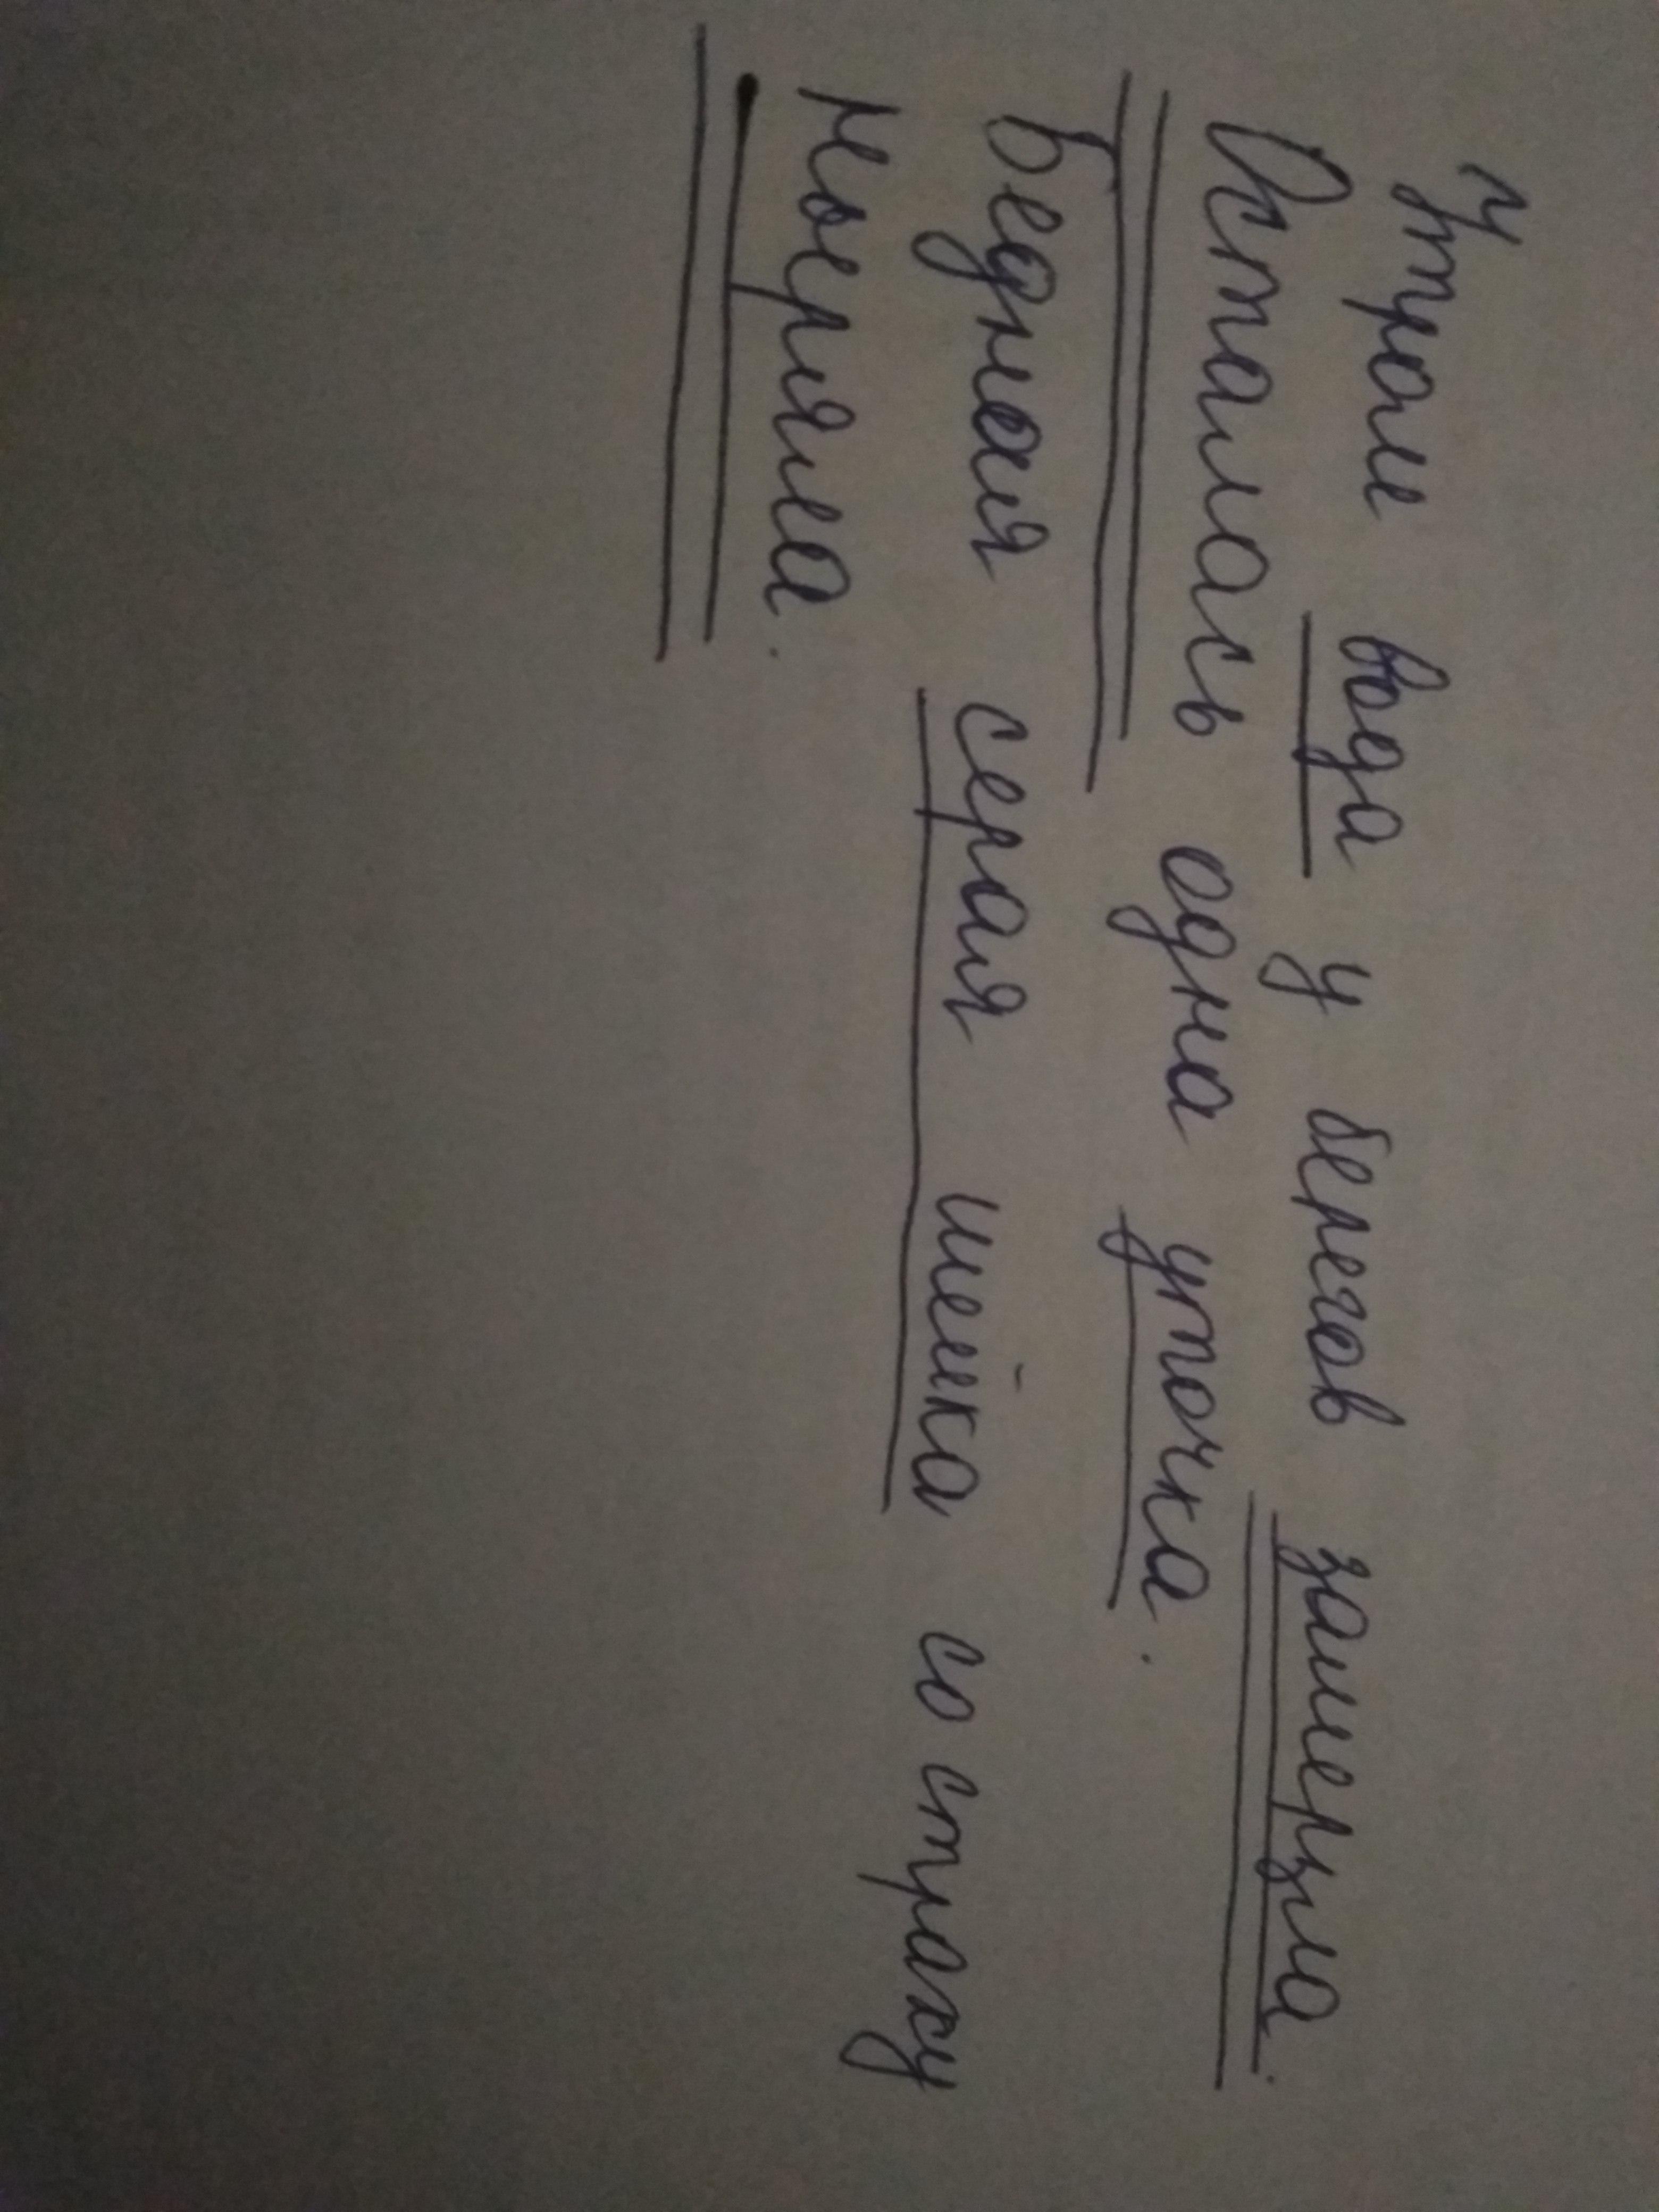 Утром вода у берегов замерзла.
Осталась одна уточка.
Бедная серая шейка со страху
ныряла.